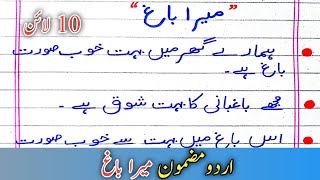 "میرا باغ"
10 لائن
ہمارے گھر میں بہت خوب صورت
باغ ہے۔
مجھے باغبانی کا بہت شوق ہے۔
اس باغ میں بہت سے خوب صورت
اردو مضمون میرا باغ